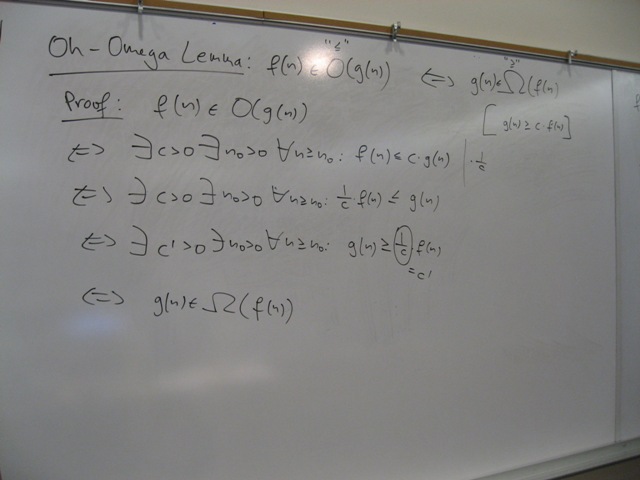 Oh-Omega Lemma: f(n) ∈ "≤" O(g(n)) ⇔ g(n) ∈ "≥" Ω(f(n)
Proof: f(n) ∈ O(g(n)) [g(n) ≥ c·f(n)]
⇔ ∃ c>0 ∃ n₀>0 ∀ n≥n₀: f(n) ≤ c·g(n) | · 1/c
⇔ ∃ c>0 ∃ n₀>0 ∀ n≥n₀: 1/c · f(n) ≤ g(n)
⇔ ∃ c'>0 ∃ n₀>0 ∀ n≥n₀: g(n) ≥ 1/c · f(n)
=c'
⇔ g(n) ∈ Ω(f(n))